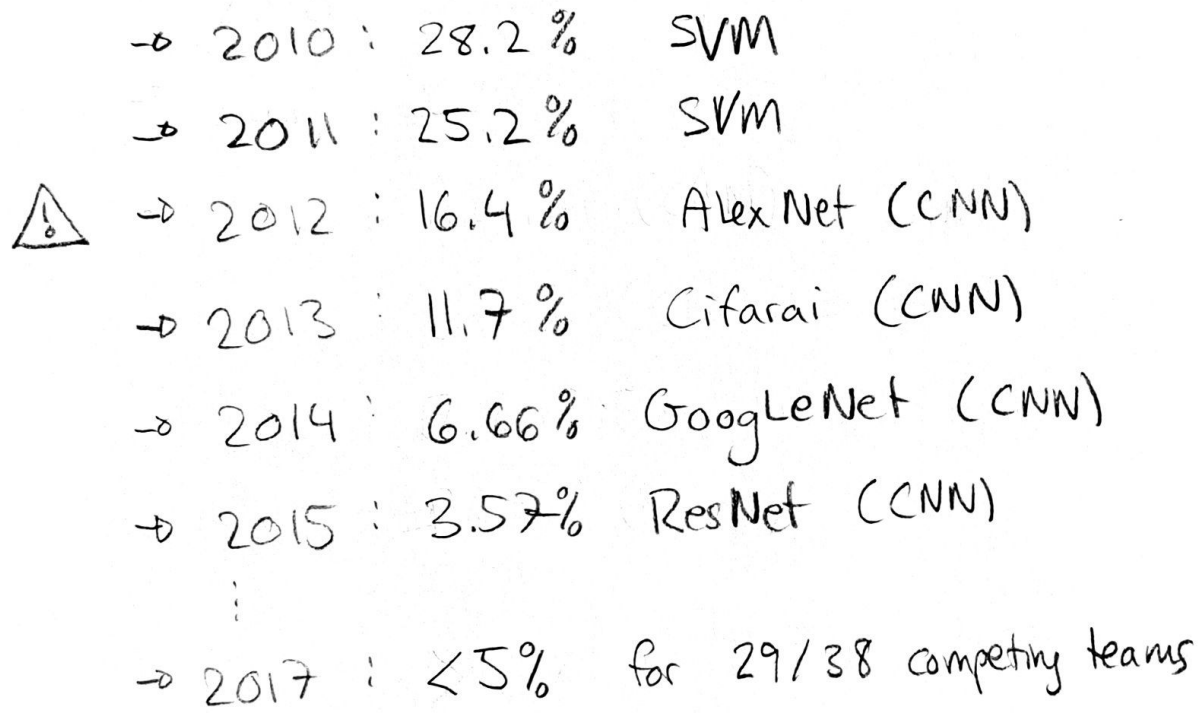 → 2010 : 28.2 % SVM
→ 2011 : 25.2 % SVM
⚠ → 2012 : 16.4 % AlexNet (CNN)
→ 2013 : 11.7 % Cifarai (CNN)
→ 2014 : 6.66% GoogLeNet (CNN)
→ 2015 : 3.57% ResNet (CNN)
⋮
→ 2017 : <5% for 29/38 competing teams